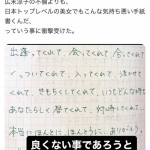 広末涼子の不倫よりも、
日本トップレベルの美女でもこんな気持ち悪い手紙
書くんだ、
っていう事に衝撃受けた。
出逢ってくれて、会ってくれて、合ってくれて
くっついてくれて、入って
くれて、いつも どんな時も
あなたらしく 居てくれて、
本当に ほんとに、ほんとうに、ありがとう。
良くない事であろうと